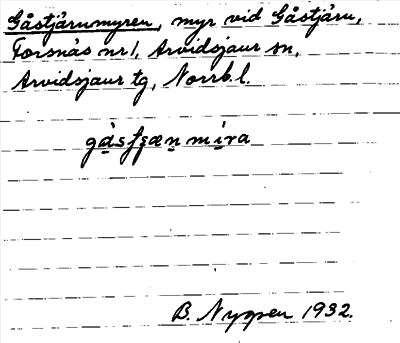 Gåstjärnmyren, myr vid Gåstjärn,
Forsnäs nr 1, Arvidsjaur sn,
Arvidsjaur tg, Norrb. l.
B. Nygren 1932.